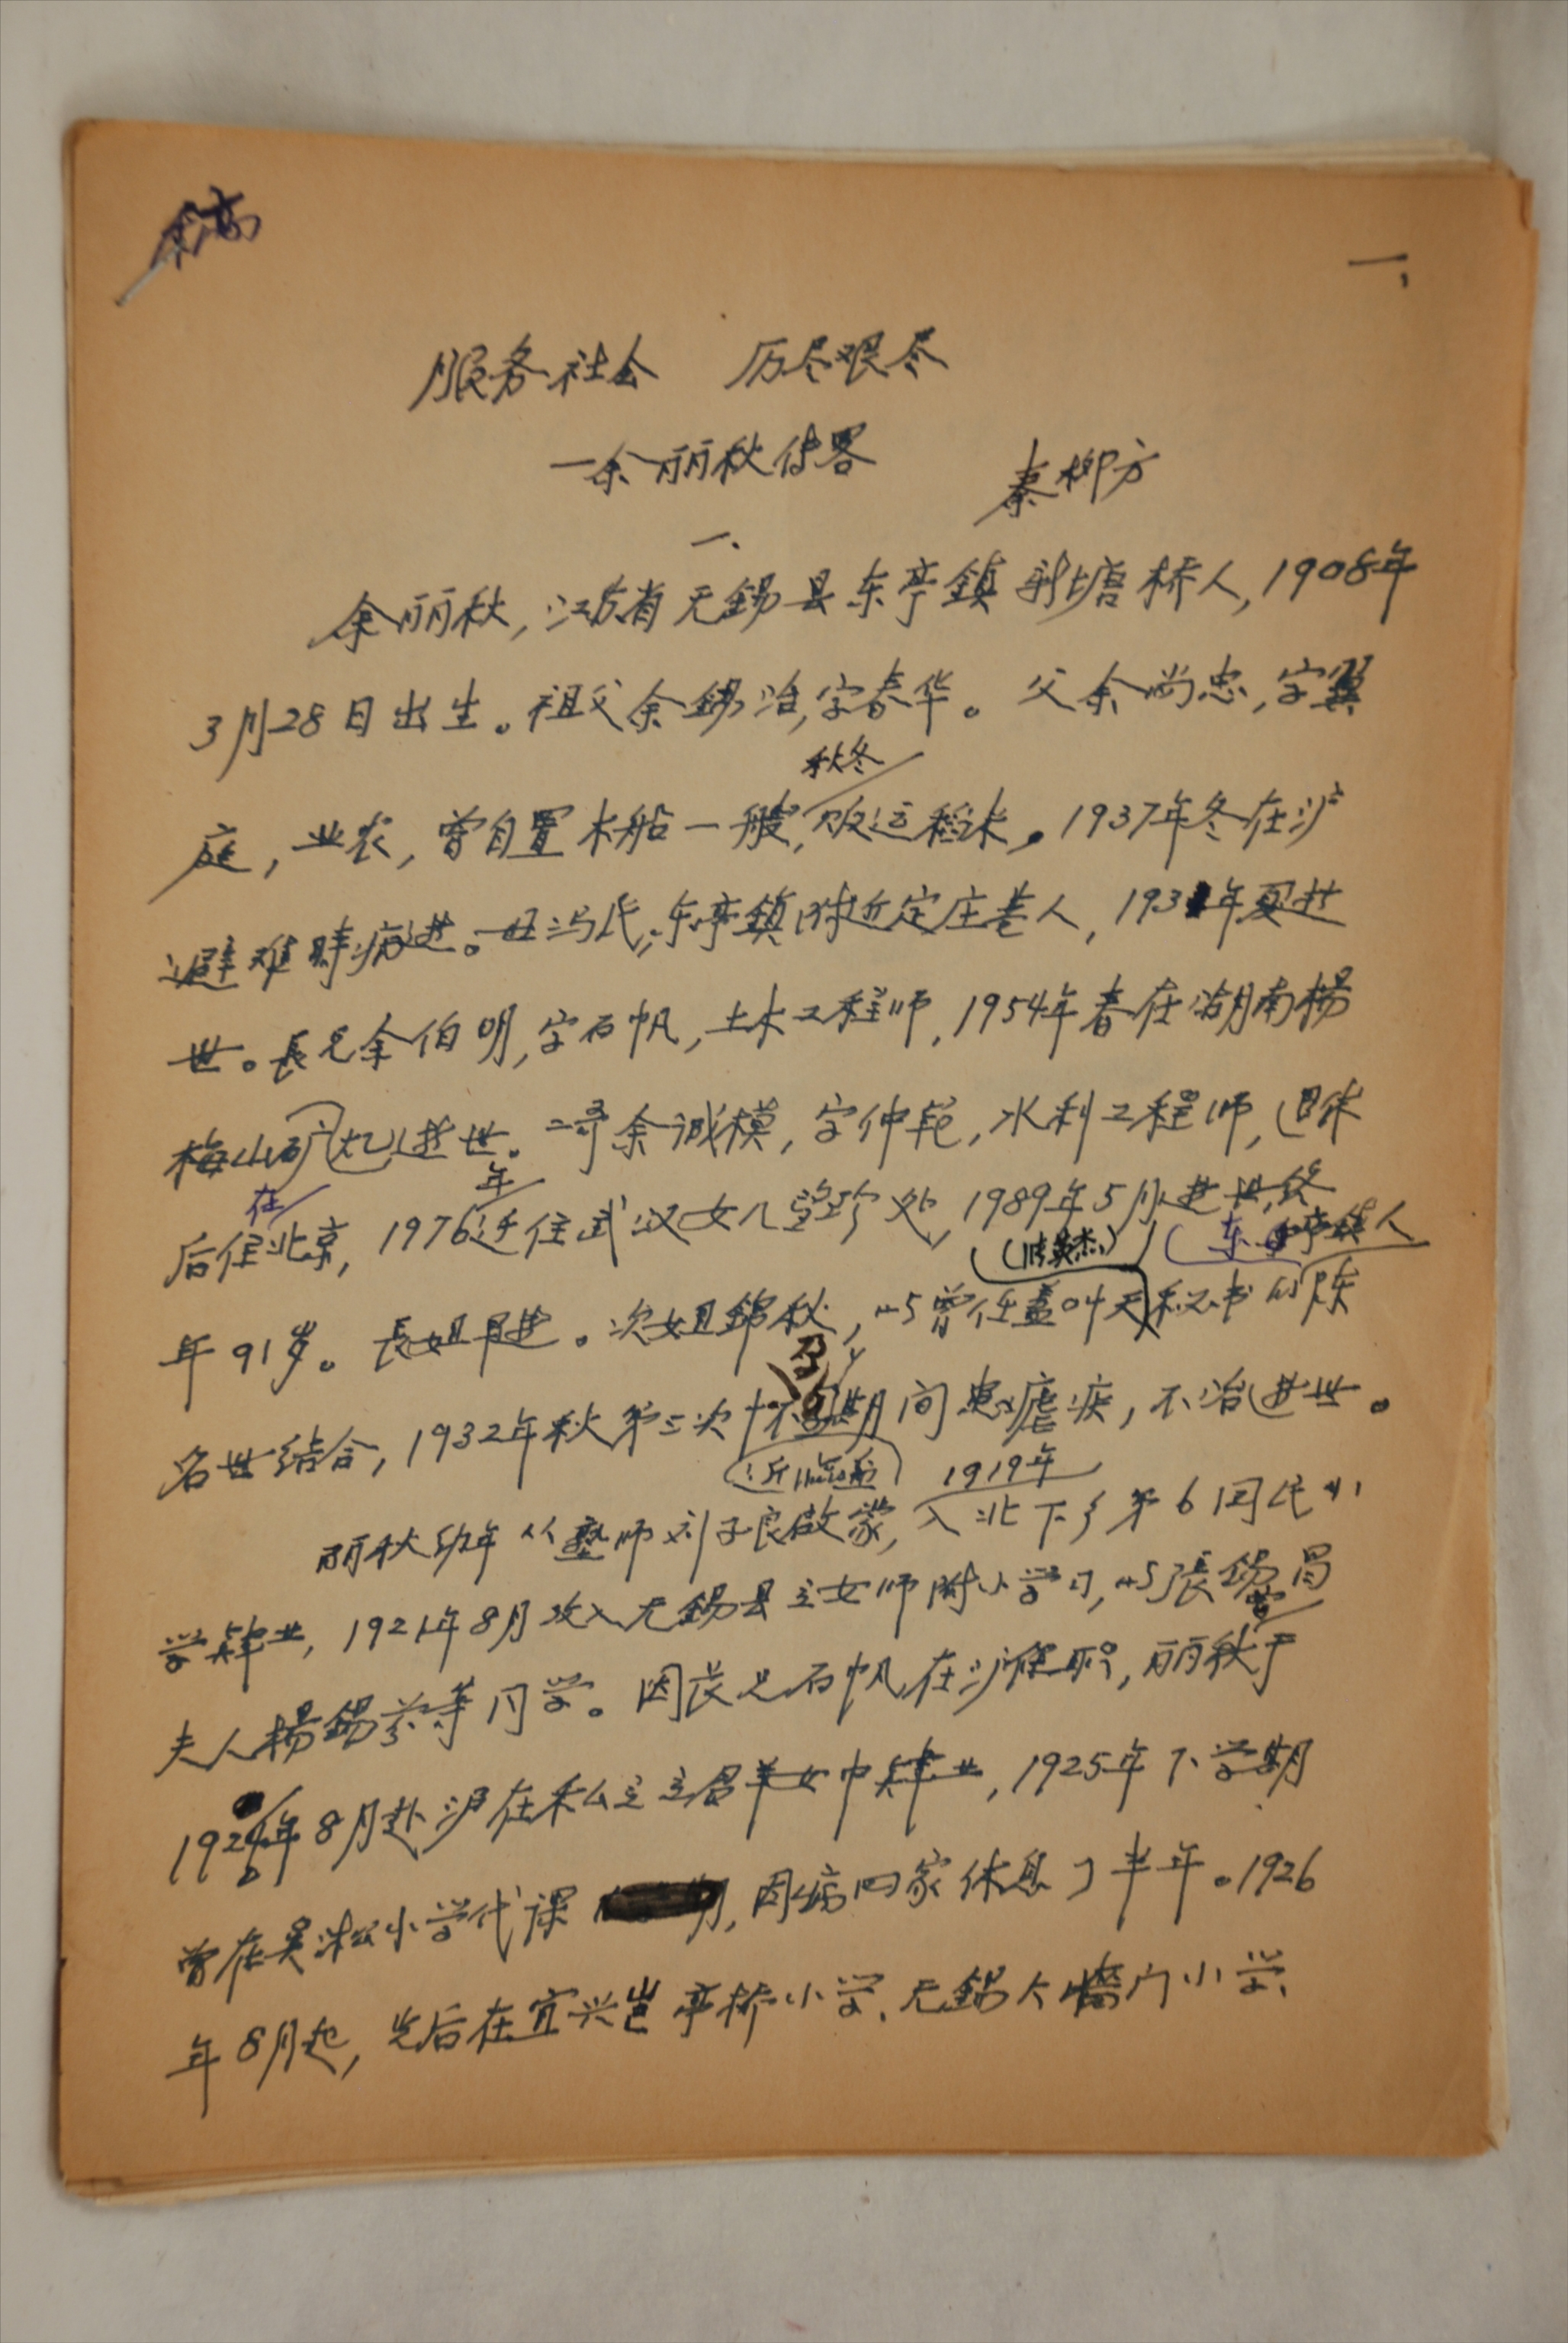 一、
服务社会 历尽艰尽
—余丽秋传略
秦柳方
一、
余丽秋，江苏省无錫县东亭鎮新塘桥人，1908年
3月28日出生。祖父余錫治，字春华。父余尚忠，字翼
秋冬
庭，业农，曾自置木船一艘，贩运稻米。1937年冬在沪
避难時病逝。母冯氏，东亭鎮附近定庄巷人，1931年夏逝
世。長兄余伯明，字石帆，土木工程师，1954年春在湖南楊
梅山矿逝世。二哥余诚模，字仲范，水利工程师，退休
在 年
后住北京，1976迁住武汉女儿珍处，1989年5月逝世，终
(陆英杰) 东亭鎮人
年91岁。長姐早逝。次姐錦秋，与曾任盖叫天秘书的陈
孕
名世结合，1932年秋第三次怀期间患瘧疾，不治逝世。
近临产 1919年
丽秋幼年从塾师刘子良啟蒙，入北下乡第6国民小
学肄业，1921年8月攷入无錫县立女师附小学习，与張錫昌
曾
夫人楊錫芬等同学。因長兄石帆在沪任职，丽秋于
1924年8月赴沪在私立立君羊女中肄业，1925年下学期
曾在吴淞小学代课，因病回家休息了半年。1926
年8月起，先后在宜兴岂亭桥小学、无錫大墙门小学、